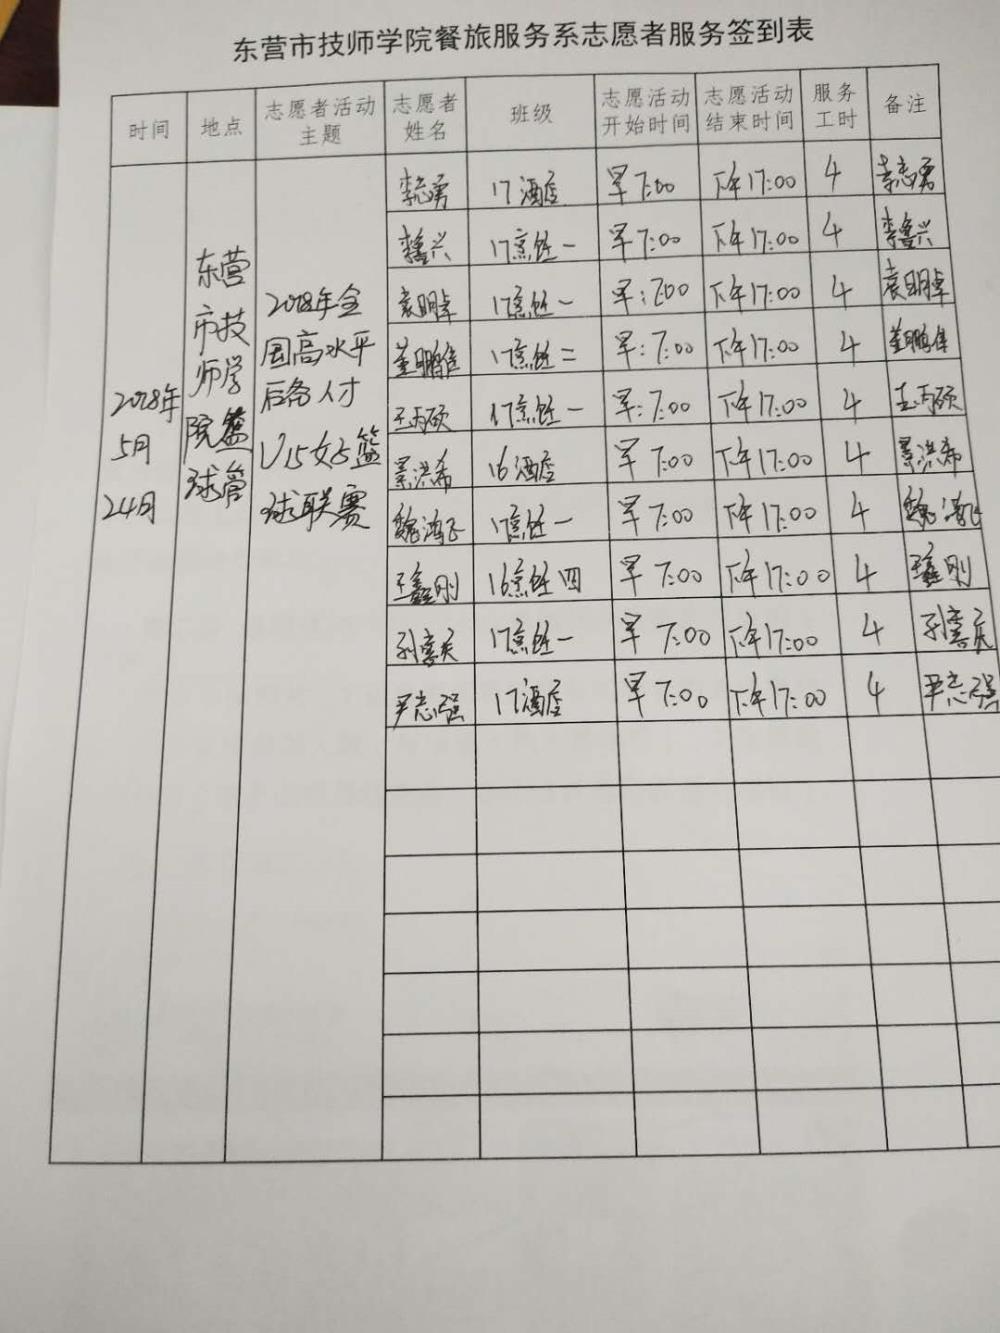 东营市技师学院餐旅服务系志愿者服务签到表
时间 地点 志愿者活动主题 志愿者姓名 班级 志愿活动开始时间 志愿活动结束时间 服务工时 备注
2018年
5月
24日
东营
市技
师学
院篮
球馆
2018年全
国高水平
后备人才
U15女子篮
球联赛
李志勇 17酒店 早7:00 下午17:00 4 李志勇
李鑫兴 17烹饪一 早7:00 下午17:00 4 李鑫兴
袁明卓 17烹饪一 早:7:00 下午17:00 4 袁明卓
董鹏伟 17烹饪二 早:7:00 下午17:00 4 董鹏伟
王丙硕 17烹饪一 早:7:00 下午17:00 4 王丙硕
景洪希 16酒店 早7:00 下午17:00 4 景洪希
魏鸿飞 17烹饪一 早7:00 下午17:00 4 魏鸿飞
王鑫刚 16烹饪四 早7:00 下午17:00 4 王鑫刚
17烹饪一 早7:00 下午17:00 4
尹志强 17酒店 早7:00 下午17:00 4 尹志强